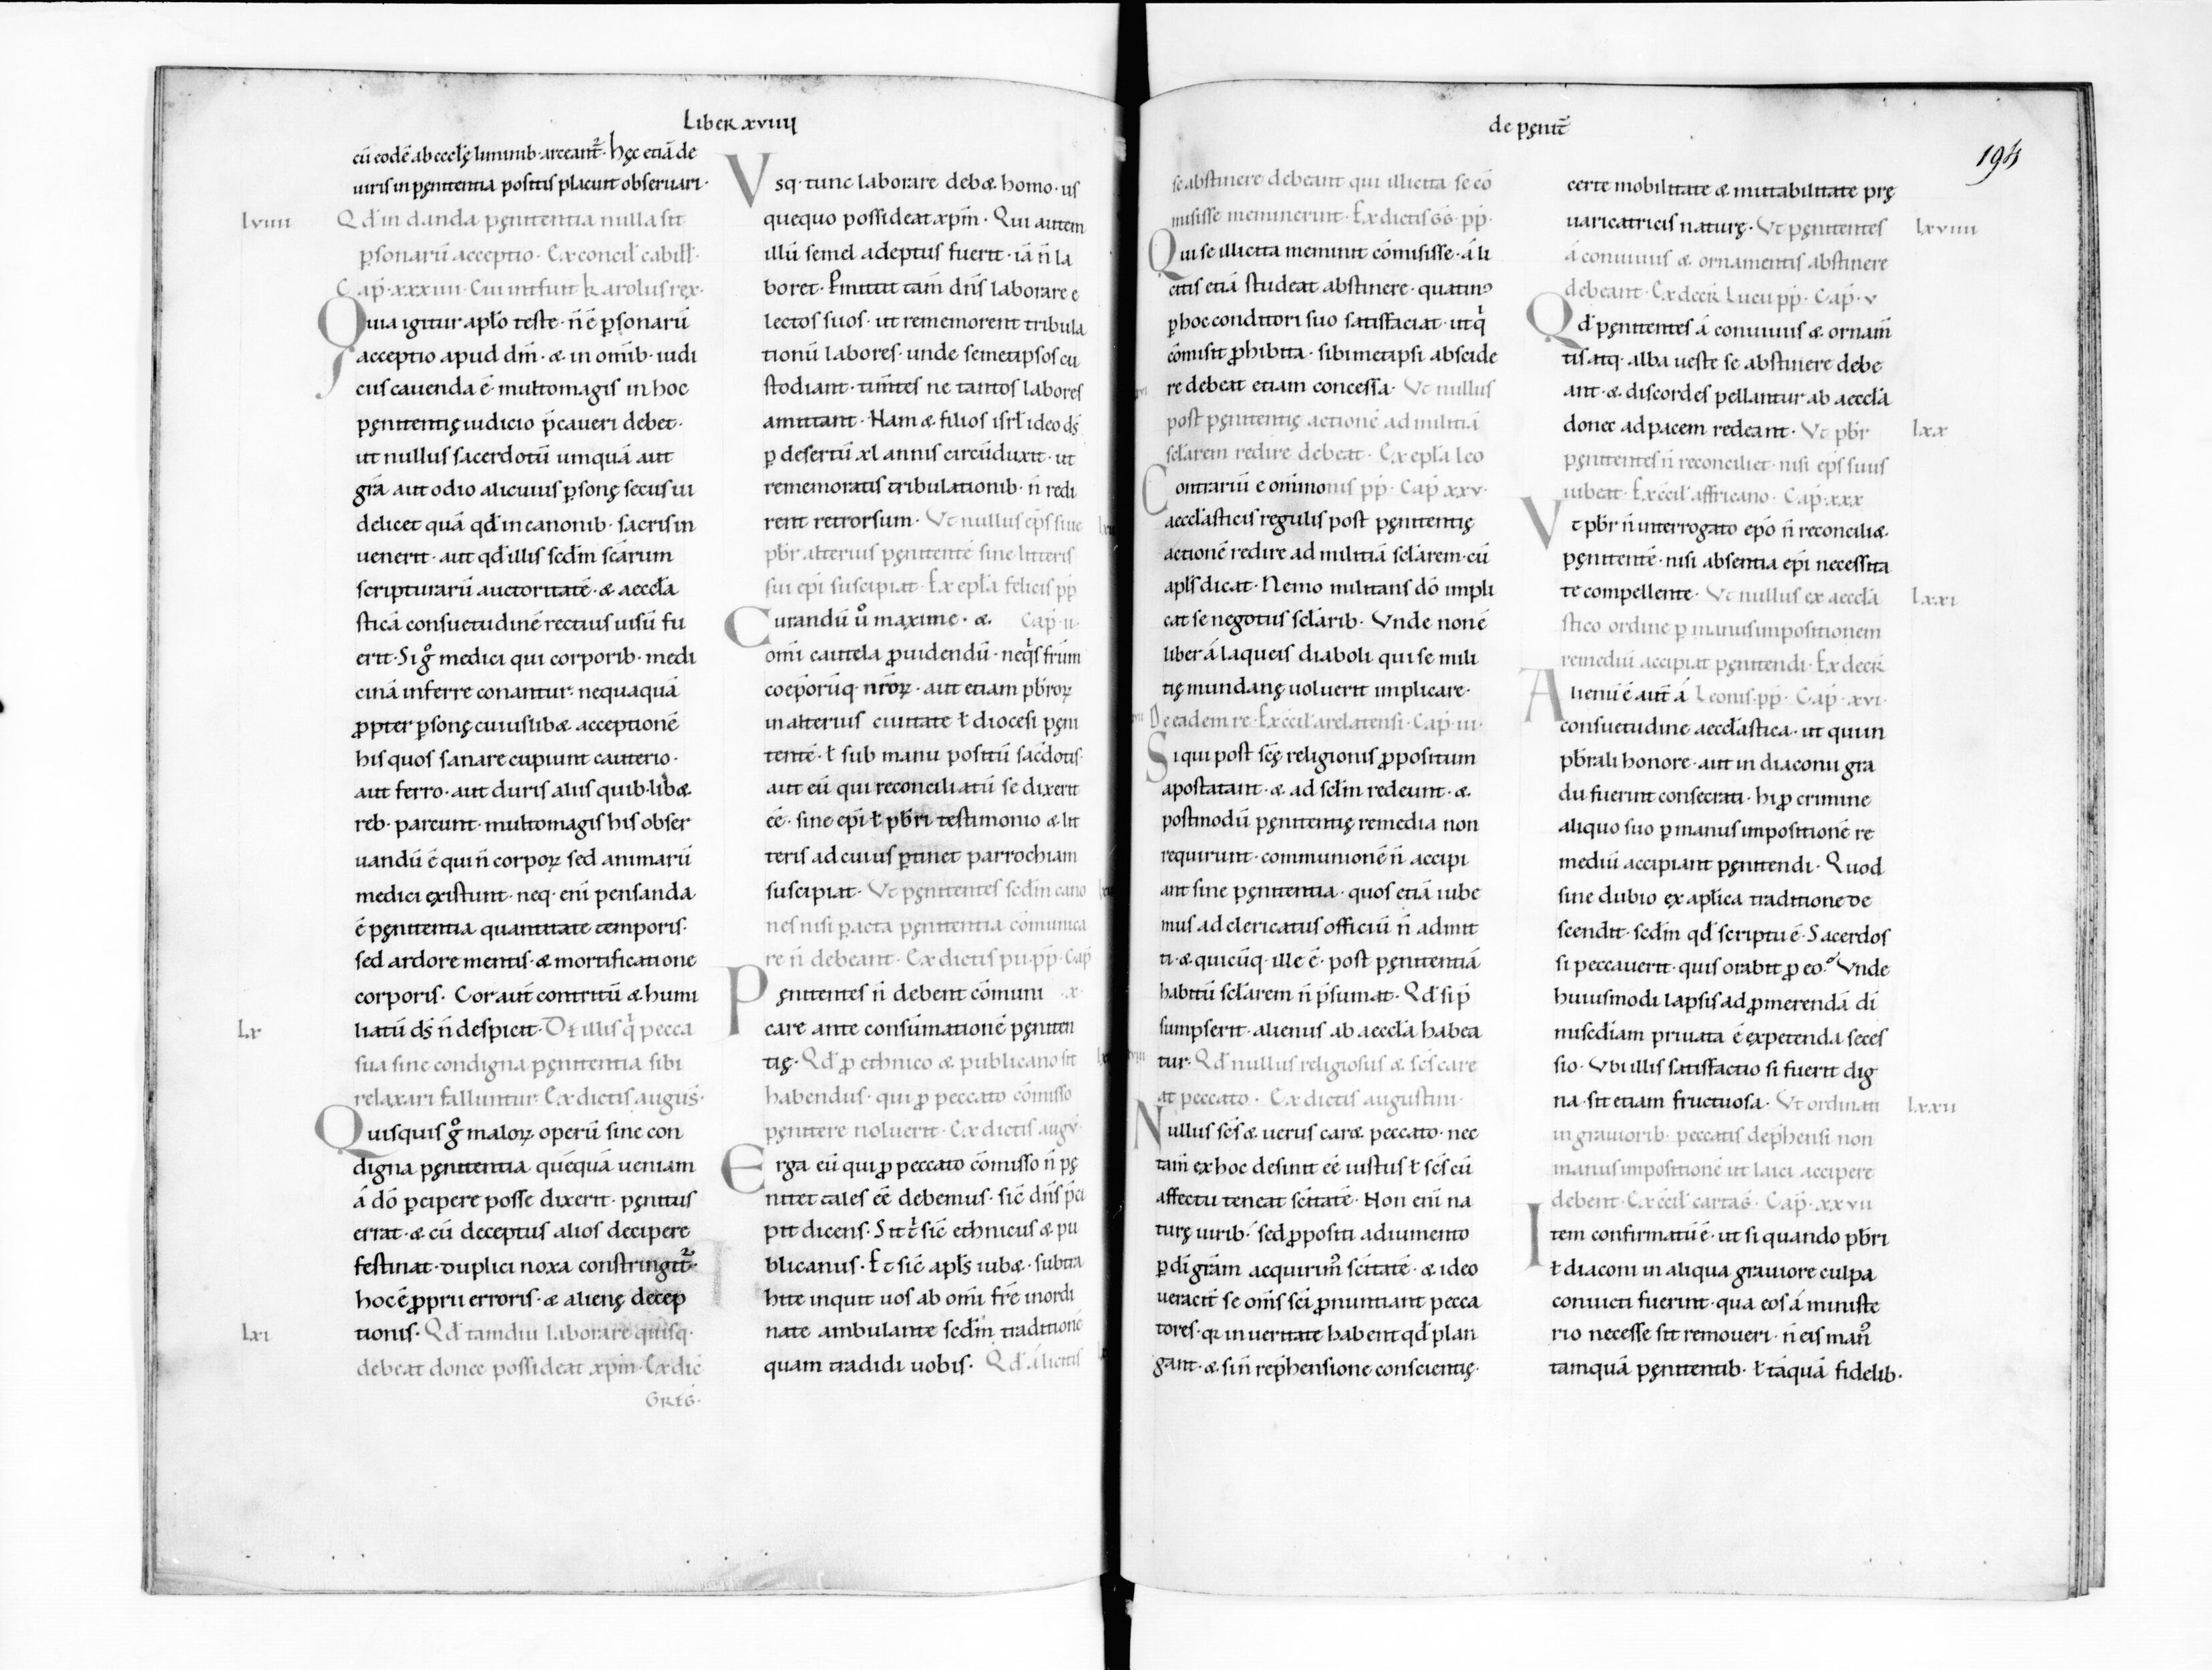 Liber xviiii
cū eodē ab eccłę liminib· arceant᷑· hęc etiā de
uiris in pęnitentia positis placuit obseruari·
lviiii
Qđ in danda pęnitentia nulla sit
ꝑsonarū acceptio· Ex concil̄ cabill̄·
Cap̄· xxxiiii· Cui intfuit karolus rex·
Quia igitur apło teste· n̄ ē ꝑsonarū
acceptio apud dm̄· & in omīb· iudi
ciis cauenda ē· multomagis in hoc
pęnitentię iudicio p̄caueri debet·
ut nullus sacerdotū umquā aut
grā aut odio alicuius ꝑsonę secus ui
delicet quā qđ in canonib· sacris in
uenerit· aut qđ illis scd̄m scārum
scripturarū auctoritatē· & aeccła
sticā consuetudinē rectius uisū fu
erit· Si gͦ medici qui corporib· medi
cinā inferre conantur· nequaquā
ꝓpter ꝑsonę cuiuslib& acceptionē
his quos sanare cupiunt cauterio·
aut ferro· aut duris aliis quib·lib&
reb· parcunt· multomagis his obser
uandū ē qui n̄ corpoꝝ sed animarū
medici existunt· neq· enī pensanda
ē pęnitentia quantitate temporis·
sed ardore mentis· & mortificatione
corporis· Cor aut̄ contritū & humi
liatū ds̄ n̄ despicit· Qđ illis q̇ pecca
lx
sua sine condigna pęnitentia sibi
relaxari falluntur· Ex dictis augus̄·
Quisquis gͦ maloꝝ operū sine con
digna pęnitentia quēquā ueniam
á dō ꝑcipere posse dixerit· pęnitus
errat· & cū deceptus alios decipere
festinat· duplici noxa constringit᷑·
hoc ē ꝓprii erroris· & alienę decep
tionis· Qđ tamdiu laborare quisq·
lxi
debeat donec possideat xpm̄· Ex dic̄
GREG·
Vsq· tunc laborare deb& homo· us
quequo possideat xpm̄· Qui autem
illū semel adeptus fuerit· iā n̄ la
boret· Ꝑmittit tam̄ dn̄s laborare e
lectos suos· ut rememorent tribula
tionū labores· unde semetipsos cu
stodiant· tim̄tes ne tantos labores
amittant· Nam & filios isrł ideo ds̄
ꝑ desertū xl annis circūduxit· ut
rememoratis tribulationib· n̄ redi
rent retrorsum· Vt nullus ep̄s siue
pbr̄ alterius pęnitentē sine litteris
sui epī suscipiat· Ex epła felicis pp̄
Curandū uͦ maxime· &· Cap̄· ii·
omī cautela ꝓuidendū· neq̇s frūm
coep̄orūq· nr̄oꝝ· aut etiam pbr̄oꝝ
in alterius ciuitate ł diocesi pęni
tentē· ł sub manu positū sac̄dotis·
aut eū qui reconciliatū se dixerit
ēē· sine epī ł pbr̄i testimonio & lit
teris ad cuius ꝑtinet parrochiam
suscipiat· Vt pęnitentes scd̄m cano
nes nisi ꝑacta pęnitentia cōmunica
re n̄ debeant· Ex dictis pii· pp̄· Cap̄
Pęnitentes n̄ debent cōmuni ·x·
care ante consūmationē pęniten
tię· Qđ ꝓ ethnico & publicano sit
habendus· qui ꝓ peccato cōmisso
pęnitere noluerit· Ex dictis augv·
Erga eū qui ꝓ peccato cōmisso n̄ pę
nitet tales ēē debemus· sic̄ dn̄s p̄ci
pit dicens· Sit ṫ sic̄ ethnicus & pu
blicanus· Et sic̄ apłs iub&· subtra
hite inquit uos ab omī frē inordi
nate ambulante scd̄m traditionē
quam tradidi uobis· Qđ á licitis
de pęnit᷑
194
se abstinere debeant qui illicita se cō
misisse meminerint· Ex dictis GG· pp̄·
Qui se illicita meminit cōmisisse· á li
citis etiā studeat abstinere· quatinꝰ
ꝑ hoc conditori suo satisfaciat· ut q̇
cōmisit ꝓhibita· sibimetipsi abscide
re debeat etiam concessa· Vt nullus
post pęnitentię actionē ad militiā
scłarem redire debeat· Ex epła leo
Contrariū ē omīmo nis pp̄· Cap̄ xxv·
aecclāsticis regulis post pęnitentię
actionē redire ad militiā scłarem· cū
apłs dicat· Nemo militans dō impli
cat se negotiis scłarib· Vnde non ē
liber á laqueis diaboli qui se mili
tię mundanę uoluerit implicare·
De eadem re· Ex c̄cił arelatensi· Cap̄· iii·
Si qui post scę̄ religionis ꝓpositum
apostatant· & ad scłm redeunt· &
postmodū pęnitentię remedia non
requirunt· communionē n̄ accipi
ant sine pęnitentia· quos etiā iube
mus ad clericatus officiū n̄ admit
ti· & quicūq· ille ē· post pęnitentiā
habitū scłarem n̄ p̄sumat· Qđ si p̄
sumpserit· alienus ab aecclā habea
tur· Qđ nullus religiosus & scs̄ care
at peccato· Ex dictis augustini·
Nullus scs̄ & uerus car& peccato· nec
tam̄ ex hoc desinit ēē iustus ł scs̄ cū
affectu teneat scītatē· Non enī na
turę uirib· sed ꝓpositi adiumento
ꝑ dī grām acquirim᷒ scītatē· & ideo
ueracit᷑ se om̄s scī ꝓnuntiant pecca
tores· qꝛ in ueritate habent qđ plan
gant· & si n̄ rep̄hensione conscientię·
certe mobilitate & mutabilitate prę
uaricatricis naturę· Vt pęnitentes
lxviiii
á conuiuiis & ornamentis abstinere
debeant· Ex decr̄ lucii pp̄· Cap̄· v
Qđ pęnitentes á conuiuiis & ornam̄
tis atq· alba ueste se abstinere debe
ant· & discordes pellantur ab aecclā
donec ad pacem redeant· Vt pbr̄
lxx
pęnitentes n̄ reconciliet· nisi ep̄s suus
iubeat· Ex c̄cił affricano· Cap̄· xxx
Vt pbr̄ n̄ interrogato epō n̄ reconcili&
pęnitentē· nisi absentia epī necessita
te compellente· Vt nullus ex aecclā
lxxi
stico ordine ꝑ manus impositionem
remediū accipiat pęnitendi· Ex decr̄
Alienū ē aut̄ á Leonis· pp̄· Cap̄· xvi·
consuetudine aecclāstica· ut qui in
pbr̄ali honore· aut in diaconii gra
du fuerint consecrati· hi ꝓ crimine
aliquo suo ꝑ manus impositionē re
mediū accipiant pęnitendi· Quod
sine dubio ex aplīca traditione de
scendit· scd̄m qđ scriptū ē· Sacerdos
si peccauerit· quis orabit ꝓ eo? Vnde
huiusmodi lapsis ad ꝓmerendā dī
misc̄diam priuata ē expetenda seces
sio· Vbi illis satisfactio si fuerit dig
na· sit etiam fructuosa· Vt ordinati
lxxii
in grauiorib· peccatis dep̄hensi non
manus impositionē ut laici accipere
debent· Ex c̄cił cartaḡ· Cap̄· xxvii
Item confirmatū ē· ut si quando pbr̄i
ł diaconi in aliqua grauiore culpa
conuicti fuerint· qua eos á ministe
rio necesse sit remoueri· n̄ eis manꝰ
tamquā pęnitentib· ł tāquā fidelib·